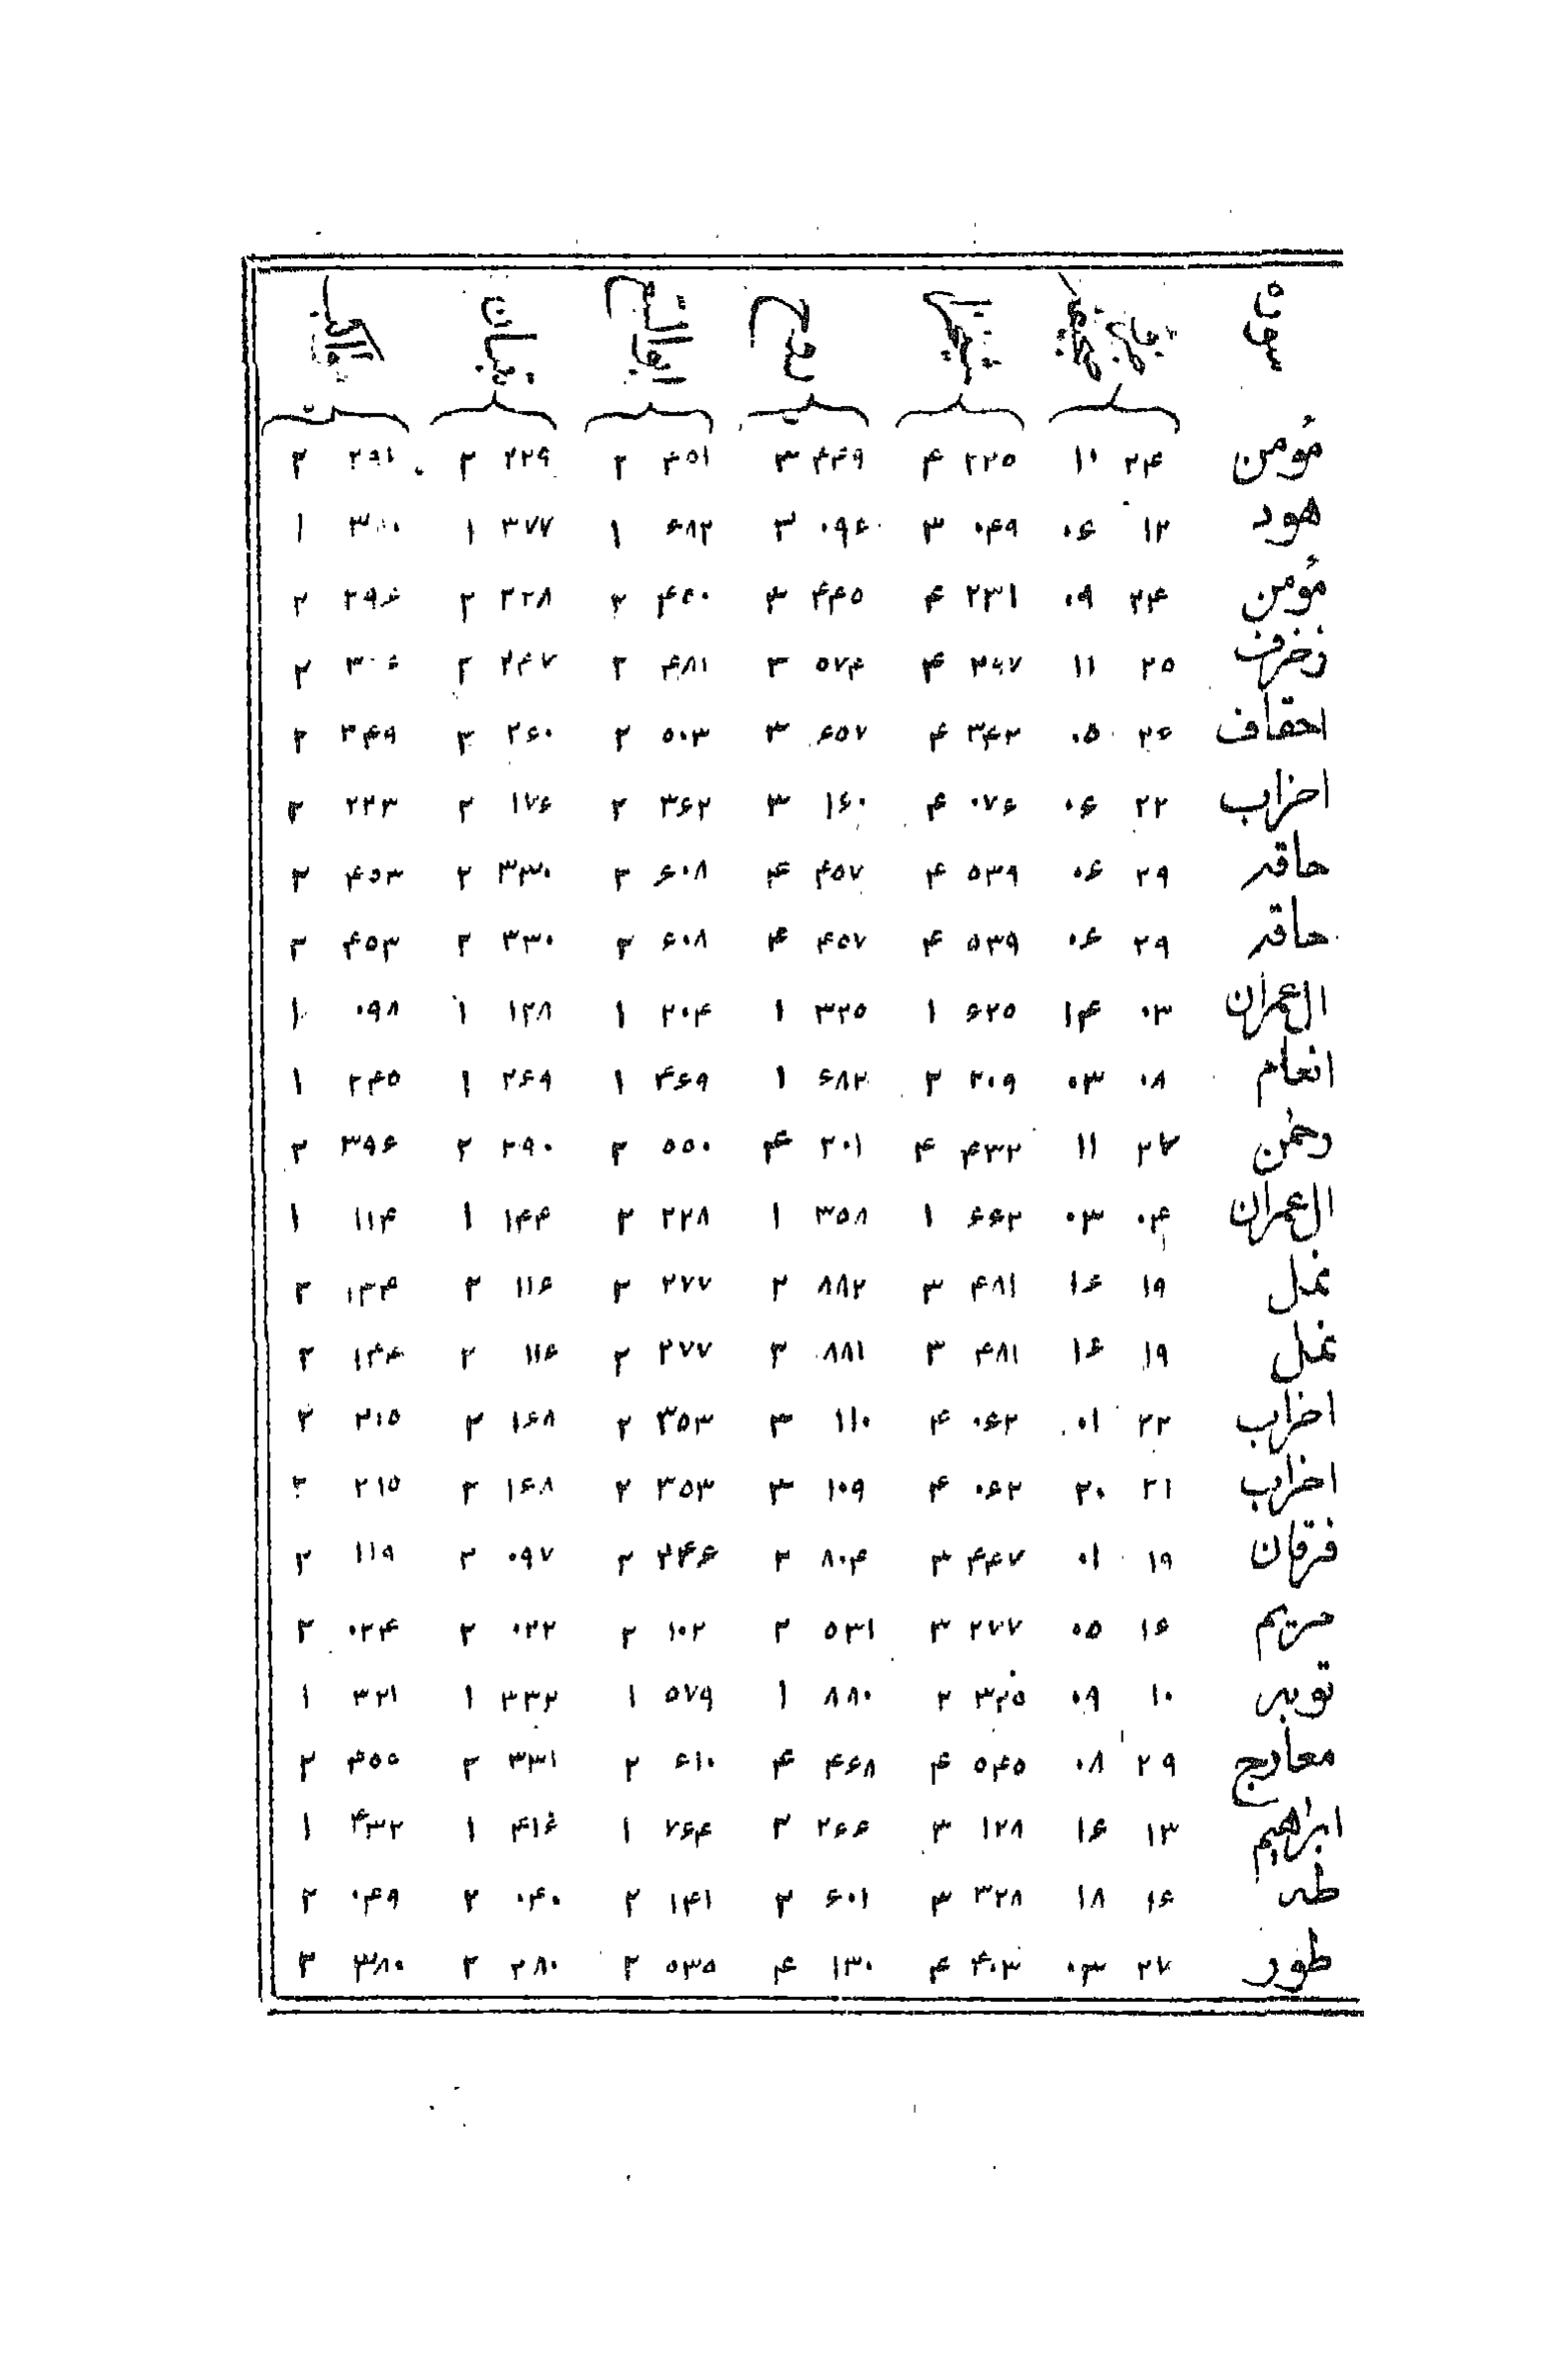 سوره
مؤمن ۲۴ ۱۰ ۲۲۵ ۴ ۴۴۹ ۳ ۴۵۱ ۲ ۲۲۹ ۲ ۲۹۱ ۲
هود ۱۲ ۰۶ ۰۴۹ ۳ ۰۹۶ ۳ ۶۸۲ ۱ ۳۷۷ ۱ ۱
مؤمن ۲۴ ۰۹ ۲۳۱ ۴ ۴۴۵ ۳ ۴۵۰ ۲ ۲۲۸ ۲ ۲۹۶ ۲
زخرف ۲۵ ۱۱ ۴ ۵۷۴ ۳ ۴۸۱ ۲ ۲۴۷ ۲ ۳۰۶ ۲
احقاف ۲۶ ۰۵ ۳۴۲ ۴ ۶۵۷ ۳ ۵۰۳ ۲ ۲۶۰ ۲ ۳۴۹ ۲
احزاب ۲۲ ۰۶ ۰۷۶ ۴ ۱۶۰ ۳ ۳۶۲ ۲ ۱۷۶ ۲ ۲۲۳ ۲
حاقه ۲۹ ۰۶ ۵۳۹ ۴ ۴۵۷ ۴ ۶۰۸ ۲ ۳۳۰ ۲ ۴۵۳ ۲
حاقه ۲۹ ۰۶ ۵۳۹ ۴ ۴۵۷ ۴ ۶۰۸ ۲ ۳۳۰ ۲ ۴۵۳ ۲
ال عمران ۰۳ ۱۴ ۶۲۵ ۱ ۳۲۵ ۱ ۲۰۴ ۱ ۱۲۸ ۱ ۰۹۸ ۱
انعام ۰۸ ۰۳ ۲۰۹ ۲ ۶۸۲ ۱ ۴۶۹ ۱ ۲۶۹ ۱ ۲۴۵ ۱
رحمن ۲۷ ۱۱ ۴۳۲ ۴ ۲۰۱ ۴ ۵۵۰ ۲ ۲۹۰ ۲ ۳۹۶ ۲
ال عمران ۰۴ ۰۳ ۶۶۲ ۱ ۳۵۸ ۱ ۲۲۸ ۲ ۱۴۴ ۱ ۱۱۴ ۱
نمل ۱۹ ۱۶ ۴۸۱ ۳ ۸۸۲ ۲ ۲۷۷ ۲ ۱۱۶ ۲ ۱۴۴ ۲
نمل ۱۹ ۱۶ ۴۸۱ ۳ ۸۸۱ ۲ ۲۷۷ ۲ ۱۱۶ ۲ ۱۴۴ ۲
احزاب ۲۲ ۰۱ ۰۶۲ ۴ ۱۱۰ ۳ ۳۵۳ ۲ ۱۶۸ ۲ ۲۱۵ ۲
احزاب ۲۱ ۲۰ ۰۶۲ ۴ ۱۰۹ ۳ ۳۵۳ ۲ ۱۶۸ ۲ ۲۱۵ ۲
فرقان ۱۹ ۰۱ ۴۴۷ ۳ ۸۰۴ ۲ ۲۴۶ ۲ ۰۹۷ ۲ ۱۱۹ ۲
مریم ۱۶ ۰۵ ۲۷۷ ۳ ۵۳۱ ۲ ۱۰۲ ۲ ۰۲۲ ۲ ۰۲۴ ۲
توبه ۱۰ ۰۹ ۳۲۵ ۲ ۸۸۰ ۱ ۵۷۹ ۱ ۳۳۲ ۱ ۳۲۱ ۱
معارج ۲۹ ۰۸ ۵۴۵ ۴ ۴۶۸ ۴ ۶۱۰ ۲ ۳۳۱ ۲ ۴۵۵ ۲
ابراهیم ۱۳ ۱۶ ۱۲۸ ۳ ۲۶۶ ۲ ۷۶۴ ۱ ۴۱۶ ۱ ۴۳۲ ۱
طه ۱۶ ۱۸ ۳۲۸ ۳ ۶۰۱ ۲ ۱۴۱ ۲ ۰۴۰ ۲ ۰۴۹ ۲
طور ۲۷ ۰۳ ۴۰۳ ۴ ۱۳۰ ۴ ۵۳۵ ۲ ۲۸۰ ۲ ۳۸۰ ۲